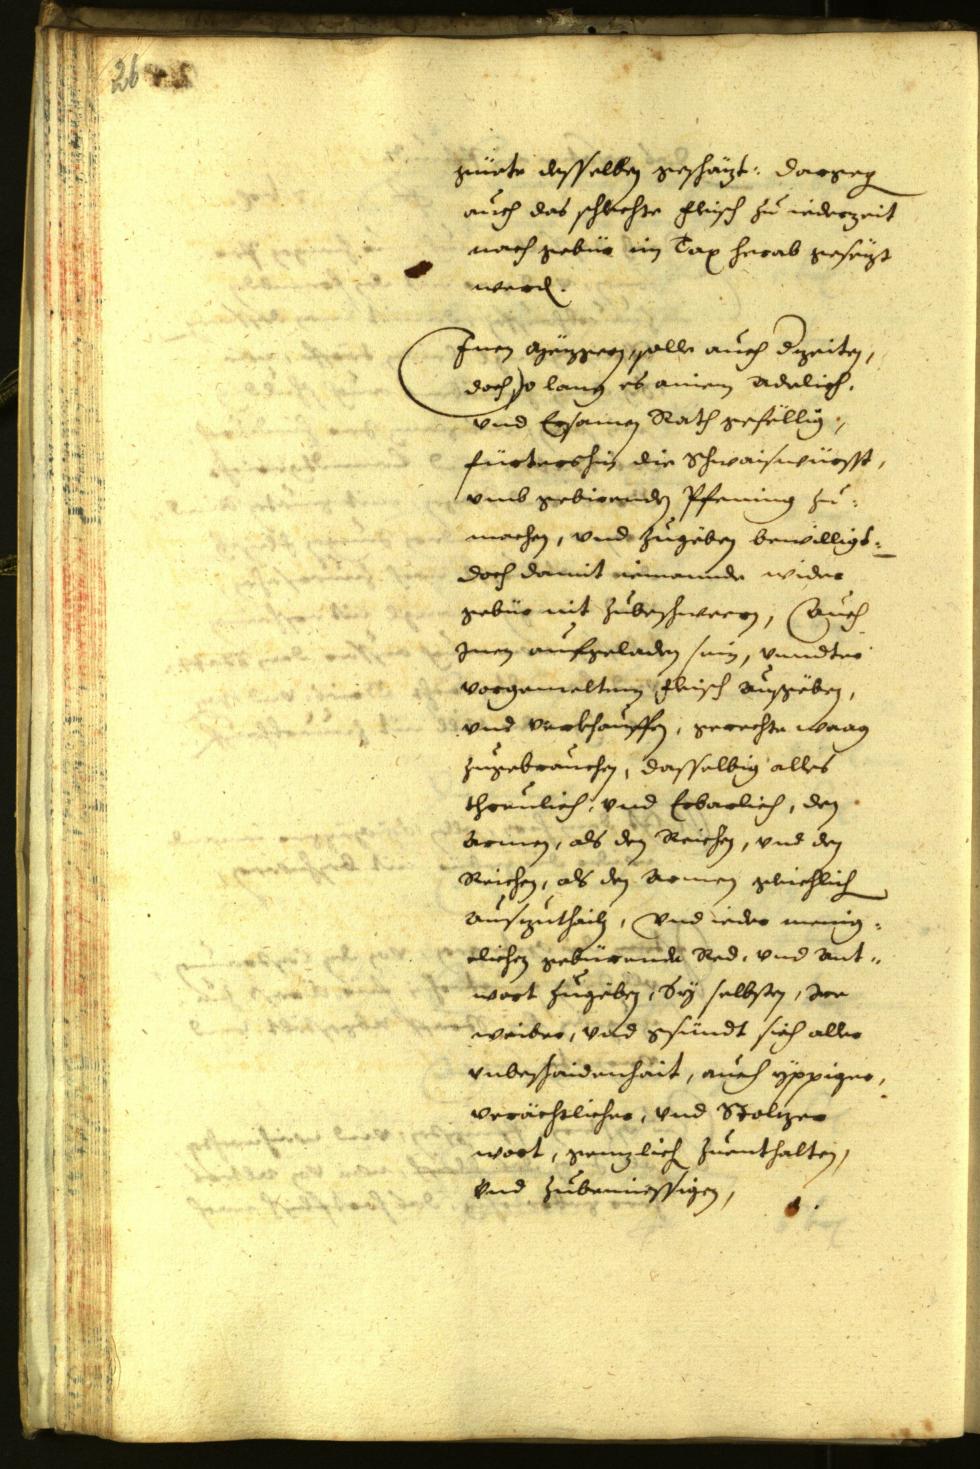 26
güete desselben geschäzt: dargegen
auch das schlechte fleisch zu iederzeit
nach gebür im Tax herab gesezt
werd.
Inen Mezgern, solle auch dzeiten,
doch so lang es ainem Adelich.
vnd Ersamen Rath gefellig,
fürterhin die Schwaiswürsst,
vmb gebirenden Pfening zu:
machen, vnd zugeben bewilligt:
doch damit niemannde wider
gebür nit zubeschwern, Auch
Inen aufgeladen sein, vnndter
vorgemeltem fleisch auszgeben,
vnd verkhauffen, gerechte waag
zugebrauchen, dasselbig alles
threulich, vnd Erbarlich, den
Armen, als den Reichen, vnd den
Reichen, als den Armen gleichlich
auszuthailn, Vnd ieder menig:
elichen gebürende Red, vnd Ant:
wort zugeben, Sy selbsten, Ire
weiber, vnd gesündt sich aller
vnbeschaidenhait, auch yppiger,
verächtlicher, vnd Stolzer
wort, genzlich zuenthalten,
Vnd zubemiessigen,